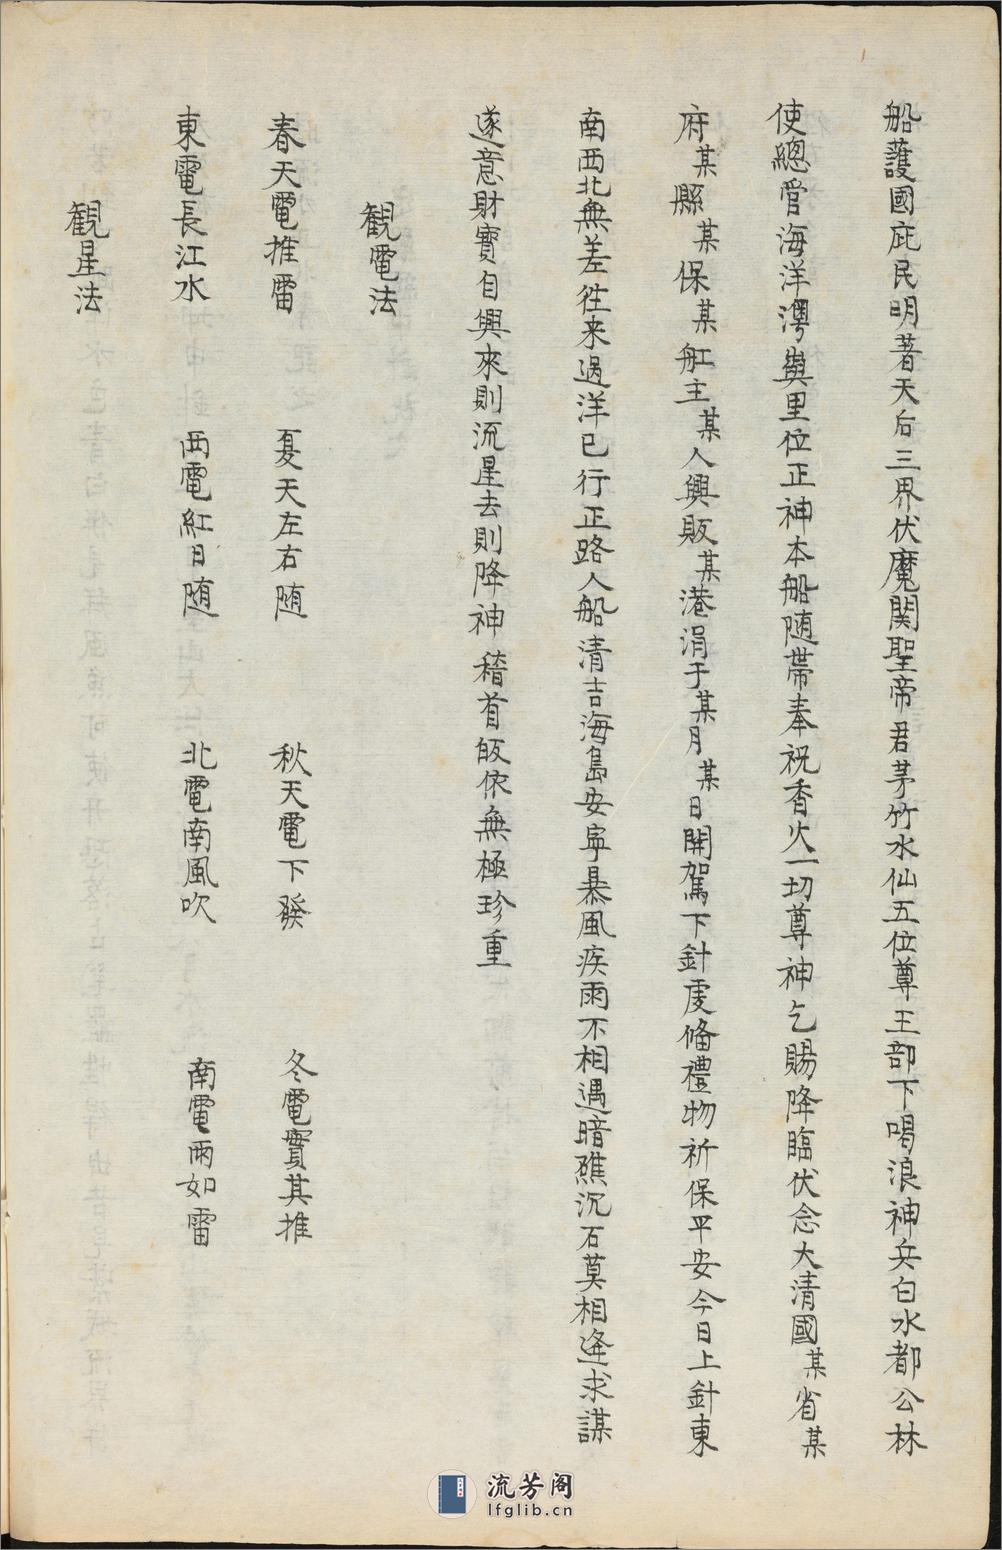 船護國庇民明著天后三界伏魔関聖帝君茅竹水仙五位尊王部下喝浪神兵白水都公林
使總官海洋澚與里位正神本船随帶奉祝香火一切尊神乞賜降臨伏念大清國某省某
府某縣某保某舡主某人興販某港涓于某月某日開駕下針虔備禮物祈保平安今日上針東
南西北無差徃来過洋已行正路人船清吉海島安寧暴風疾雨不相遇暗礁沉石莫相逄求謀
遂意財寳自興來則流星去則降神稽首皈依無極珍重
観電法
春天電推雷 夏天左右随 秋天電下發 冬電實其推
東電長江水 西電紅日随 北電南風吹 南電两如雷
観星法
流芳阁
lfglib.cn